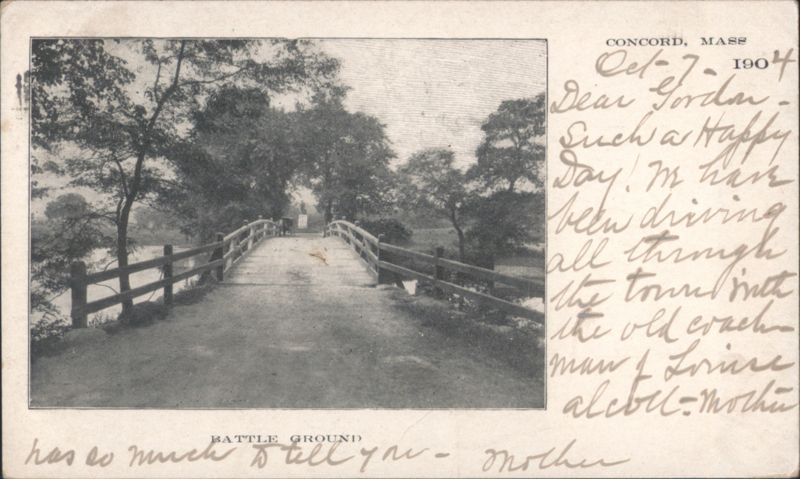 CONCORD, MASS
Oct- 7- 1904
Dear Gordon-
Such a Happy
Day! We have
been driving
all through
the town with
the old coach-
man of Louise
alcott- Mother
BATTLE GROUND
has so much to tell you- Mother